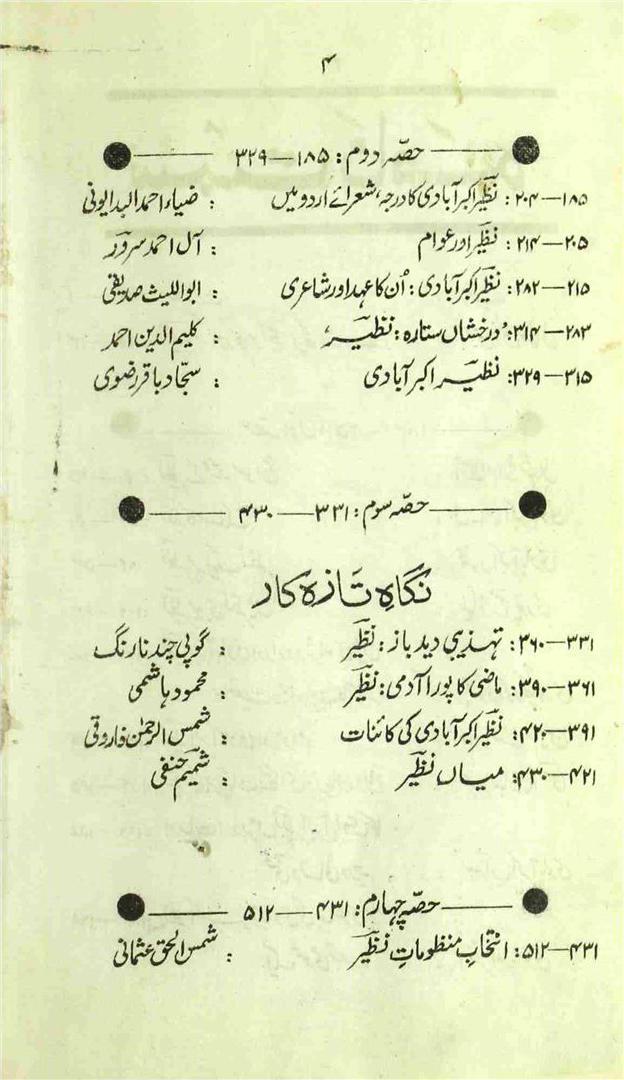 ۴
حصّہ دوم: ۱۸۵—۳۲۹
۱۸۵—۲۰۴: نظیرؔ اکبر آبادی کا درجہ، شعرائے اردو میں : ضیاء احمد البدایونی
۲۰۵—۲۱۴: نظیرؔ اور عوام : آل احمد سرورؔ
۲۱۵—۲۸۲: نظیرؔ اکبر آبادی: اُن کا عہد اور شاعری : ابواللیث صدیقی
۲۸۳—۳۱۴: درخشاں ستارہ: نظیرؔ : کلیم الدین احمد
۳۱۵—۳۲۹: نظیرؔ اکبر آبادی : سجّاد باقر رضوی
حصہ سوم: ۳۳۱—۴۳۰
نگاہِ تازہ کار
۳۳۱—۳۶۰: تہذیبی دید باز: نظیرؔ : گوپی چند نارنگ
۳۶۱—۳۹۰: ماضی کا پورا آدمی: نظیرؔ : محمود ہاشمی
۳۹۱—۴۲۰: نظیرؔ اکبر آبادی کی کائنات : شمس الرحمٰن فاروقی
۴۲۱—۴۳۰: میاں نظیرؔ : شمیم حنفی
حصّہ چہارم: ۴۳۱—۵۱۲
۴۳۱—۵۱۲: انتخابِ منظوماتِ نظیرؔ : شمس الحق عثمانی